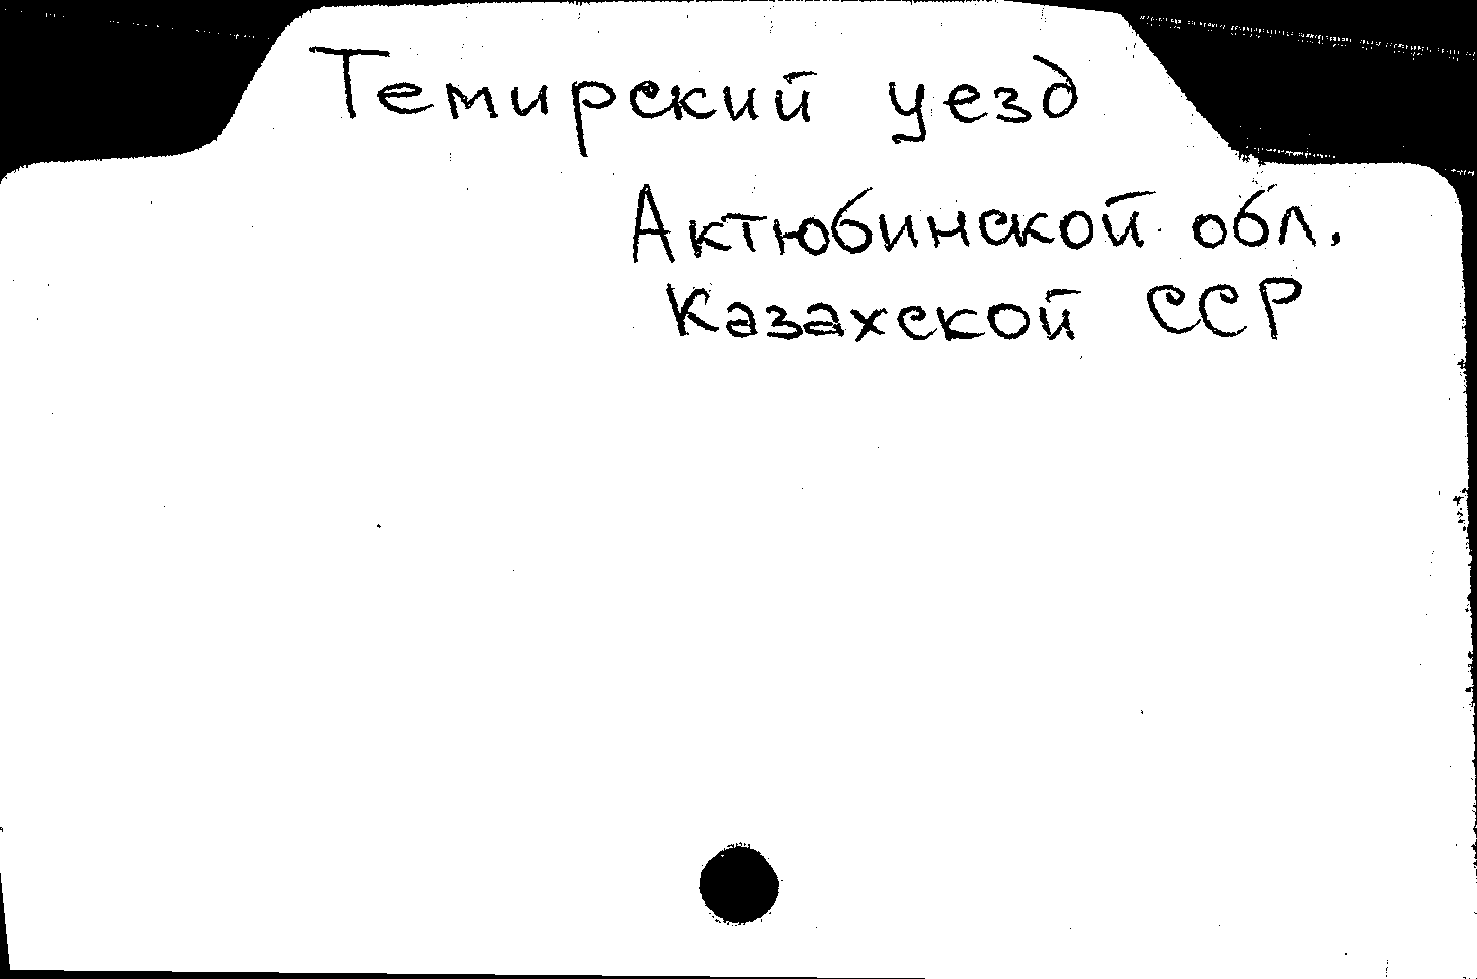 Темирский уезд
Актюбинской обл.
Казахской ССР